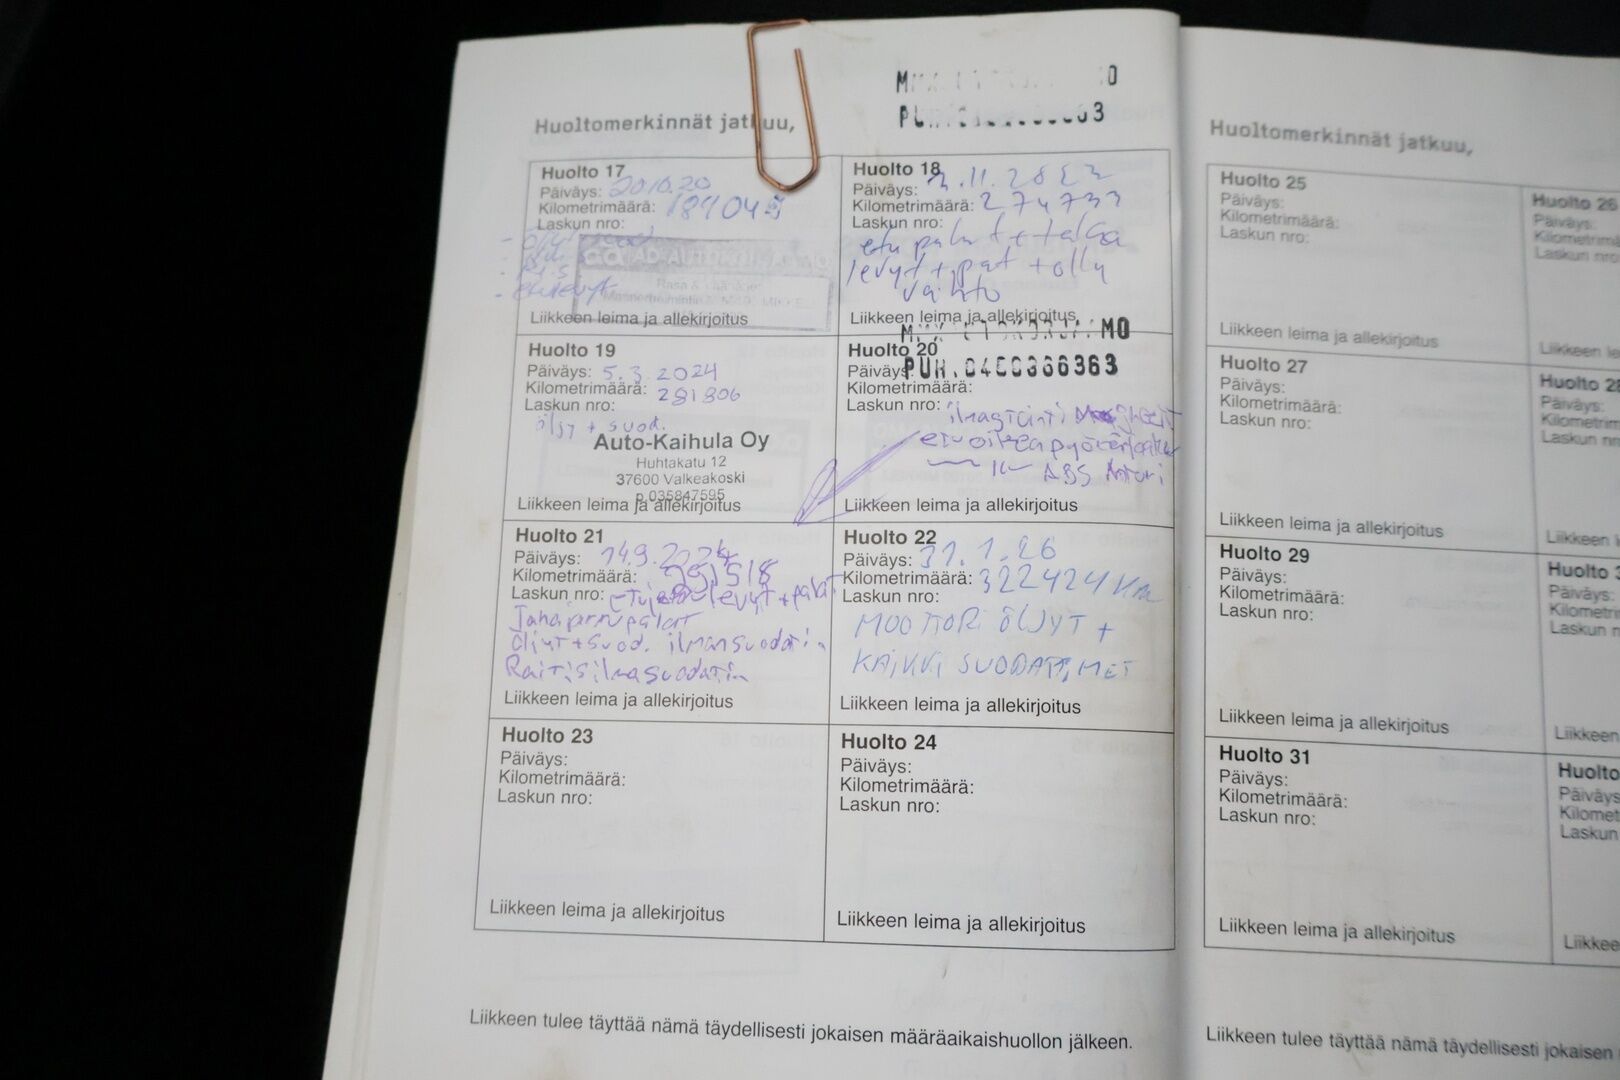 Huoltomerkinnät jatkuu,
Huolto 17
Päiväys: 20.10.20
Kilometrimäärä:
Laskun nro:
Liikkeen leima ja allekirjoitus
Huolto 18
Päiväys: .11.2023
Kilometrimäärä: 274733
Laskun nro:
etu palat + takaa
levyt + pat + öljy
vaihto
Liikkeen leima ja allekirjoitus
Huolto 19
Päiväys: 5.3.2024
Kilometrimäärä: 281806
Laskun nro:
öljy + suod.
Auto-Kaihula Oy
Huhtakatu 12
37600 Valkeakoski
p.035847595
Liikkeen leima ja allekirjoitus
Huolto 20
PUH.0400366363
Päiväys:
Kilometrimäärä:
Laskun nro:
etu oikea
ABS Anturi
Liikkeen leima ja allekirjoitus
Huolto 21
Päiväys: 14.9.2024
Kilometrimäärä:
Laskun nro: levyt + palat
Takajarrupalat
Öljyt + suod. ilmansuodatin
Raitisilmasuodatin
Liikkeen leima ja allekirjoitus
Huolto 22
Päiväys: 31.1.26
Kilometrimäärä: 322424 km
Laskun nro:
MOOTTORI ÖLJYT +
KAIKKI SUODATTIMET
Liikkeen leima ja allekirjoitus
Huolto 23
Päiväys:
Kilometrimäärä:
Laskun nro:
Liikkeen leima ja allekirjoitus
Huolto 24
Päiväys:
Kilometrimäärä:
Laskun nro:
Liikkeen leima ja allekirjoitus
Liikkeen tulee täyttää nämä täydellisesti jokaisen määräaikaishuollon jälkeen.
Huoltomerkinnät jatkuu,
Huolto 25
Päiväys:
Kilometrimäärä:
Laskun nro:
Liikkeen leima ja allekirjoitus
Huolto 26
Päiväys:
Kilometrimäärä
Laskun nro
Liikkeen
Huolto 27
Päiväys:
Kilometrimäärä:
Laskun nro:
Liikkeen leima ja allekirjoitus
Huolto 28
Päiväys:
Kilometrim
Laskun nr
Liikkeen l
Huolto 29
Päiväys:
Kilometrimäärä:
Laskun nro:
Liikkeen leima ja allekirjoitus
Huolto 3
Päiväys:
Kilometrim
Laskun n
Liikkeen
Huolto 31
Päiväys:
Kilometrimäärä:
Laskun nro:
Liikkeen leima ja allekirjoitus
Huolto
Päiväys
Kilomet
Laskun
Liikkee
Liikkeen tulee täyttää nämä täydellisesti jokaisen